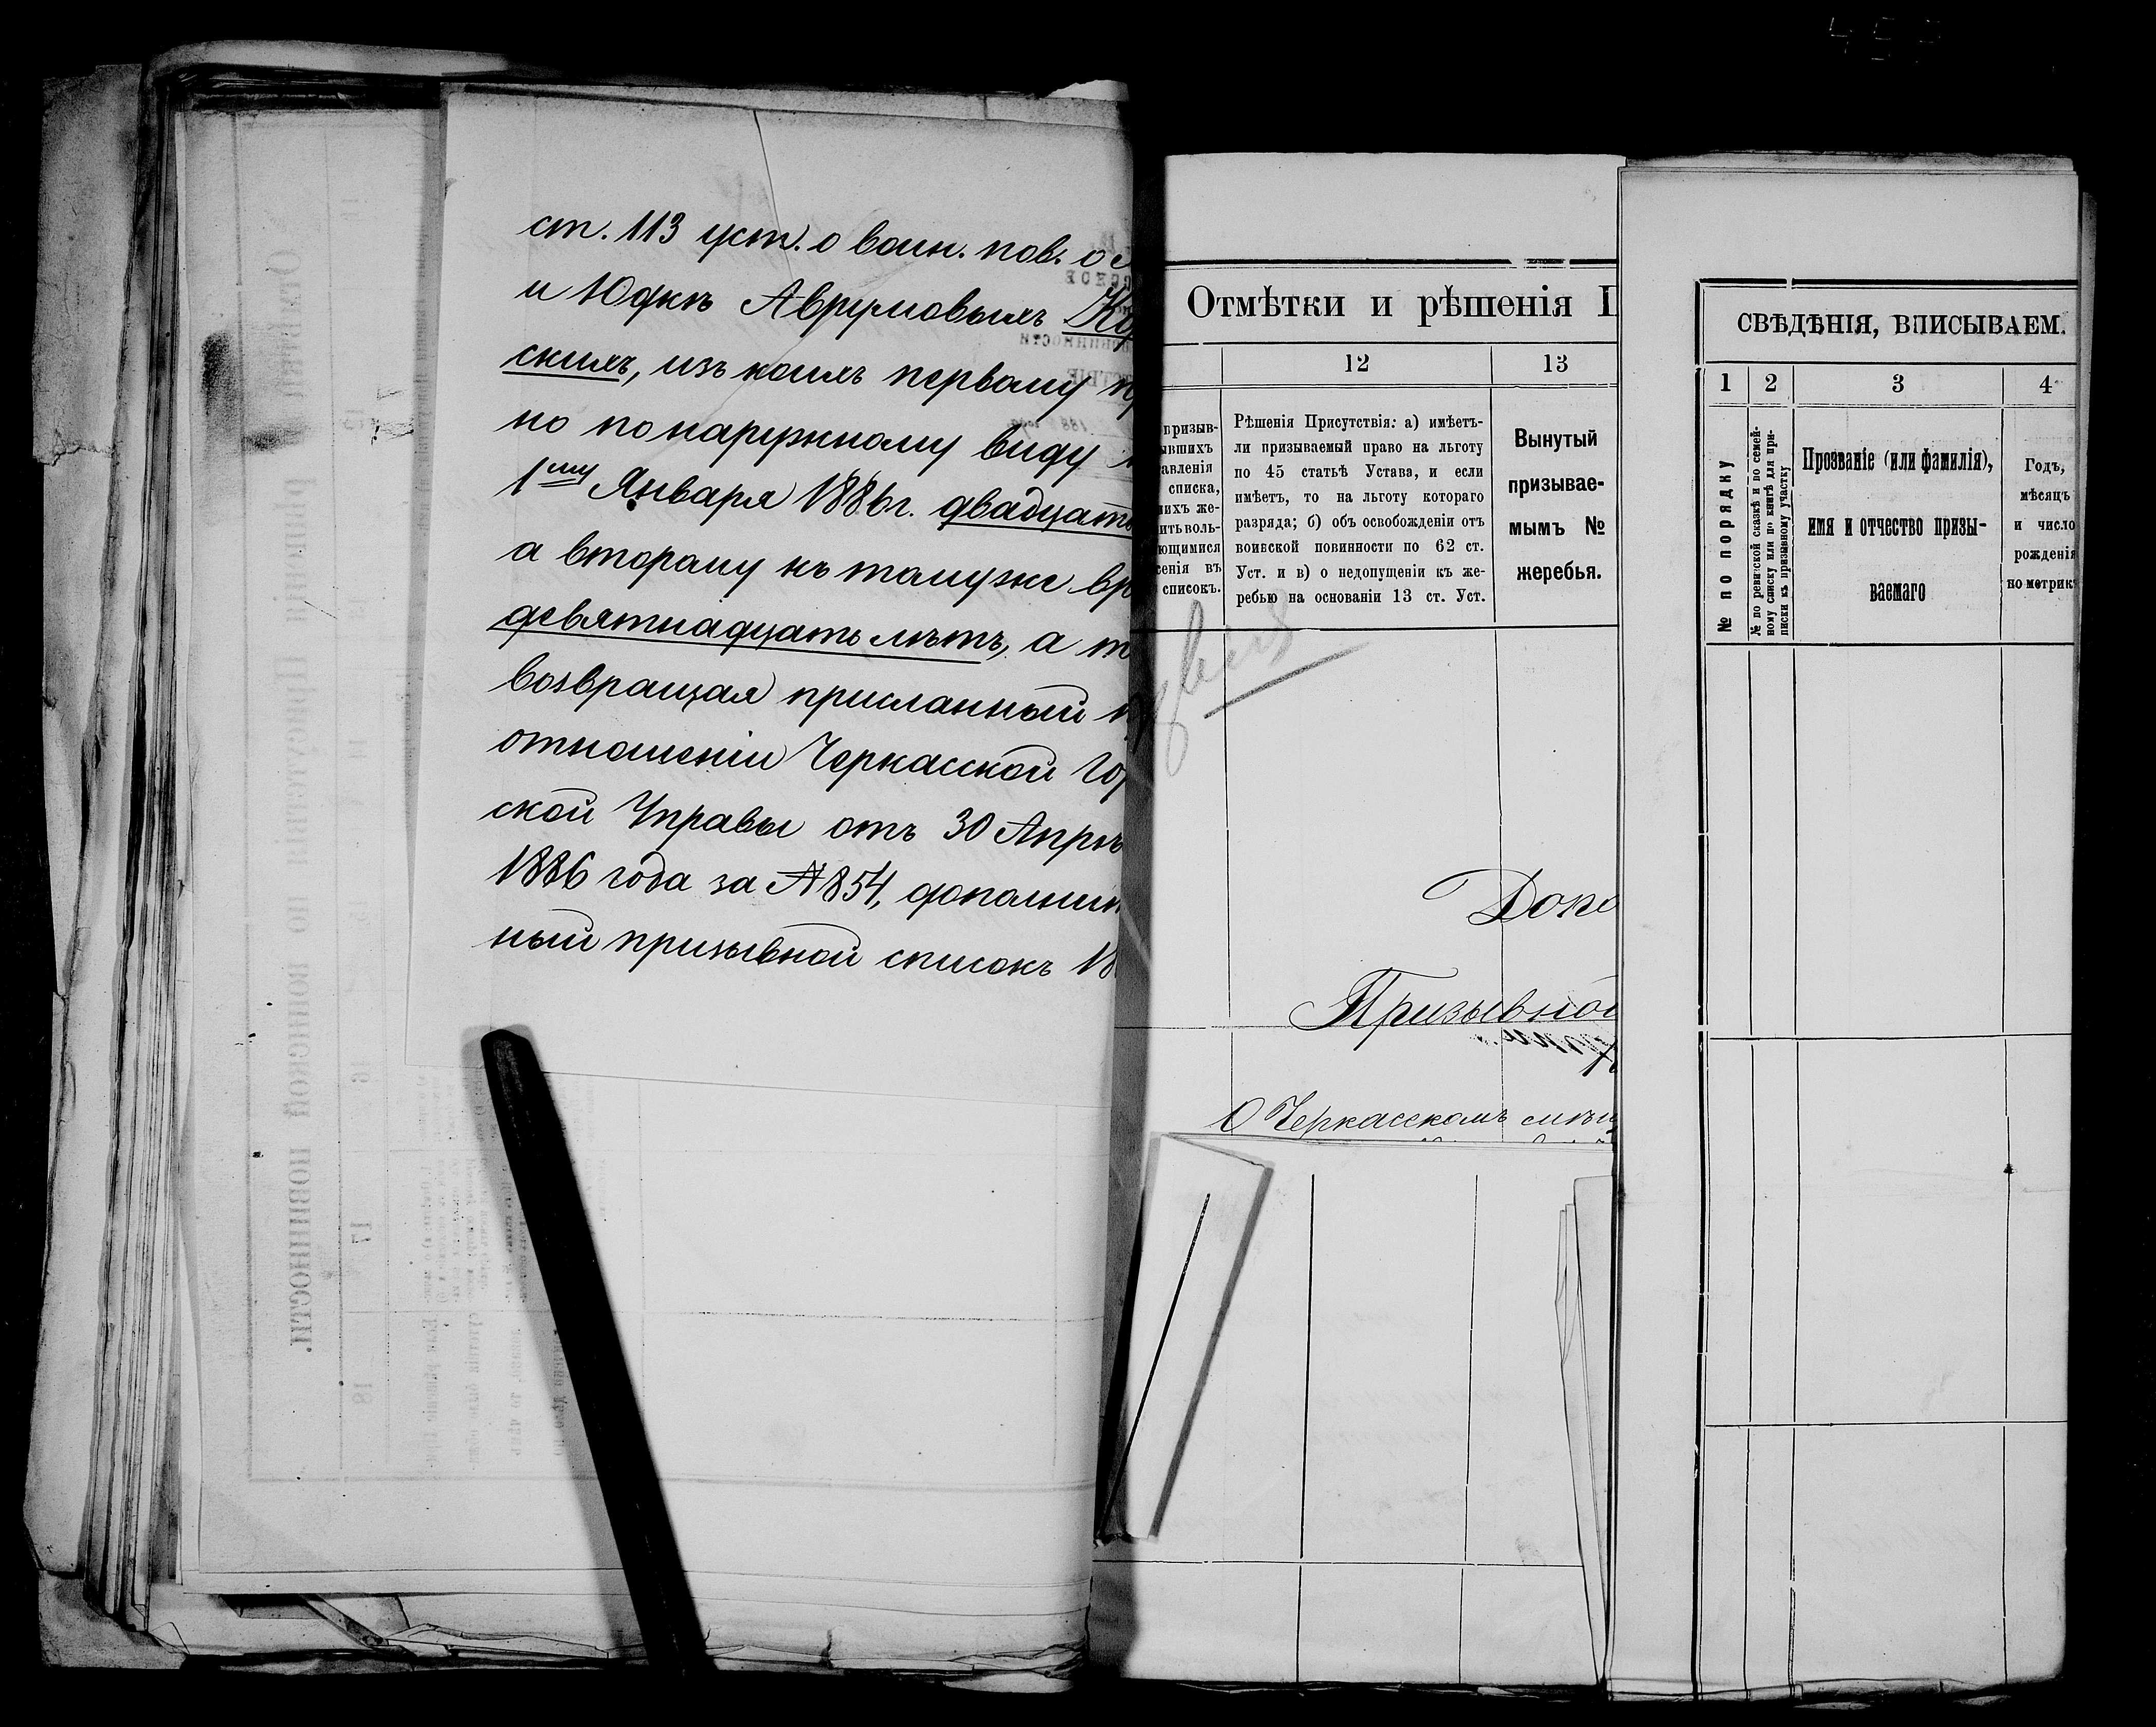 ст. 113 уст. о воин. пов. о
и Юдкѣ Аврумовымъ
скимъ, изъ коихъ первому
но по наружному виду
1му Января 1886г. двадцать
а второму къ тому же вр
девятнадцать лѣтъ, а
возвращая присланный
отношеніи Черкасской Гор
ской Управы отъ 30 Апрѣ
1886 года за № 854, дополнит
ный призывной списокъ 18
Отмѣтки и рѣшенія П
12
13
призыв-
ывшихъ
авленія
списка,
ихъ же-
ить воль-
ющимися
сенія въ
списокъ.
Рѣшенія Присутствія: а) имѣетъ-
ли призываемый право на льготу
по 45 статьѣ Устава, и если
имѣетъ, то на льготу котораго
разряда; б) объ освобожденіи отъ
воинской повинности по 62 ст.
Уст. и в) о недопущеніи къ же-
ребью на основаніи 13 ст. Уст.
Вынутый
призывае-
мымъ №
жеребья.
Призывной
О Черкасскомъ мѣщ
СВѢДѢНІЯ, ВПИСЫВАЕМ.
1
2
3
4
№ по порядку
№ по ревизской сказкѣ и по семей-
ному списку или по книгѣ для при-
писки къ призывному участку
Прозваніе (или фамилія),
имя и отчество призы-
ваемаго
Годъ,
мѣсяцъ
и число
рожденія
по метрик